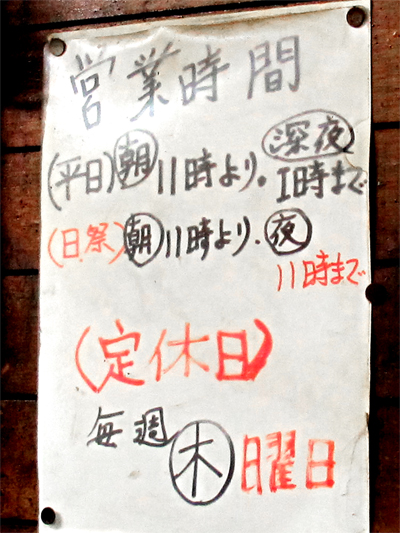 営業時間
(平日)朝11時より。深夜1時まで
(日.祭)朝11時より.夜
11時まで
(定休日)
毎週木曜日